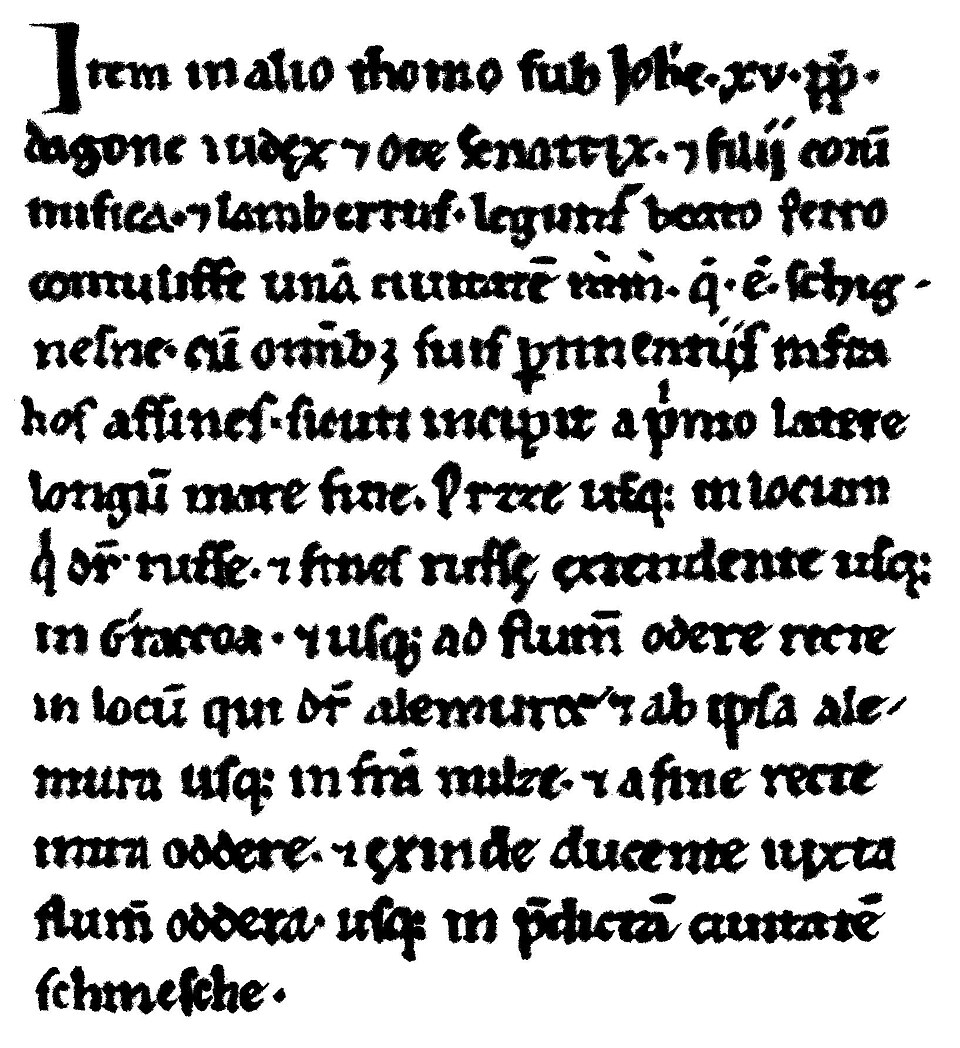 Item in alio thomo sub Ioh̄e. xv. pp̄.
dagone iudęx ⁊ Ote senatrix. ⁊ filii eorū
misica. ⁊ lambertus. legunt beato petro
contulisse unā ciuitatē q̄. ē. schig-
nesne. cū om̄ib; suis ꝑtinentiis infra
hos affines. sicuti incipit a pͥmo latere
longū mare fine. Pruzze usq: in locum
qͥ dr̄ russe. ⁊ fines russę extendente usq:
in Craccoa. ⁊ usq; ad flum̄ odere recte
in locū qui dr̄ alemura ⁊ ab ipsa ale-
mura usq: in t̄rā milze. ⁊ a fine recte
intra oddere. ⁊ exinde ducente iuxta
flum̄ oddera. usq: in p̄dictā ciuitatē
schinesche.